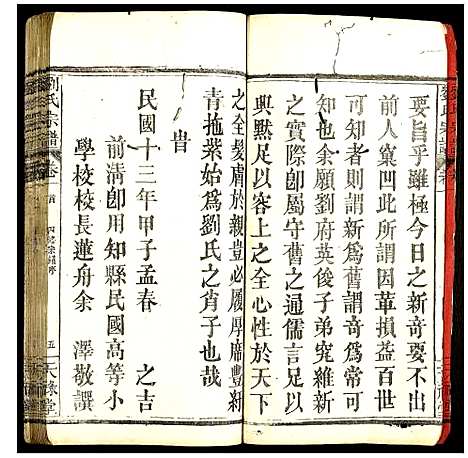 要旨乎雖極今日之新奇要不出
前人窠凹此所謂因革損益百世
可知者則謂新爲舊謂奇爲常可
知也余願劉府英俊子弟究維新
之實際卽屬守舊之通儒言忠不
與黙足以容上之全心性於天下
之全髮膚於親豈必履厚席豐紆
青拖紫始爲劉氏之肖子也哉
旹
民國十三年甲子孟春 之吉
前淸卽用知縣民國高等小
學校校長蓮舟余 澤敬譔
劉氏宗譜 卷 首 五 天祿堂